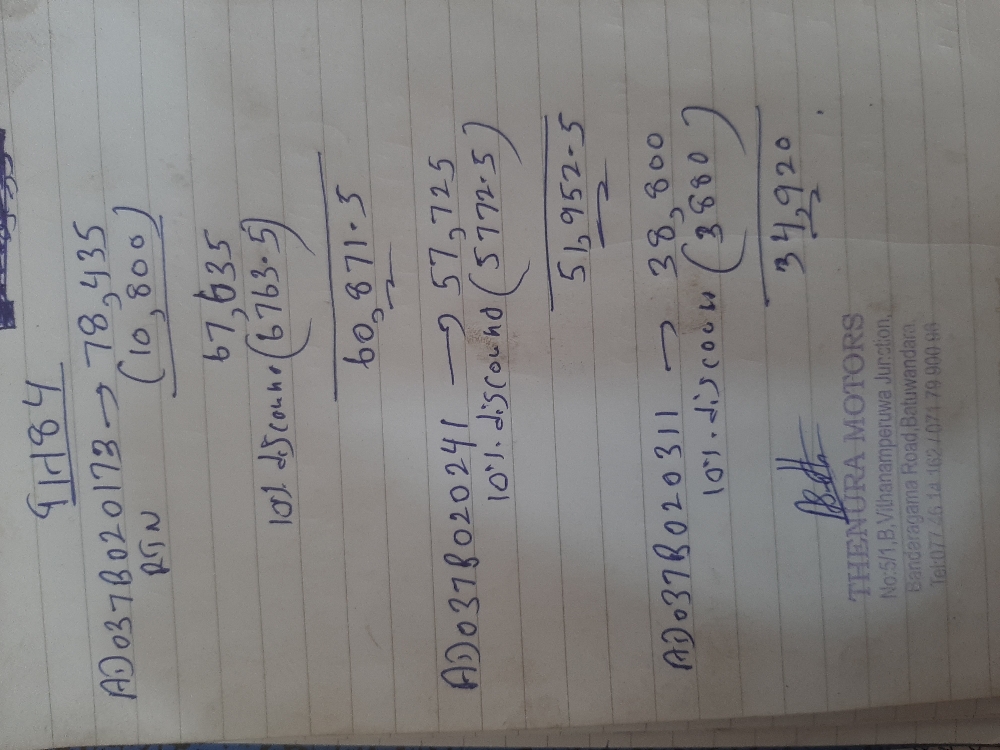 AD037B020173 → 78,435
RTN (10,800)
67,635
10% discount (6763.5)
60,871.5
AD037B020241 → 57,725
10% discount (5772.5)
51,952.5
AD037B020311 → 38,800
10% discount (3880)
34,920
THENURA MOTORS
No:5/1,B,Vithanamperuwa Junction,
Bandaragama Road,Batuwandara.
Tel:077 46 14 162 / 071 79 900 96